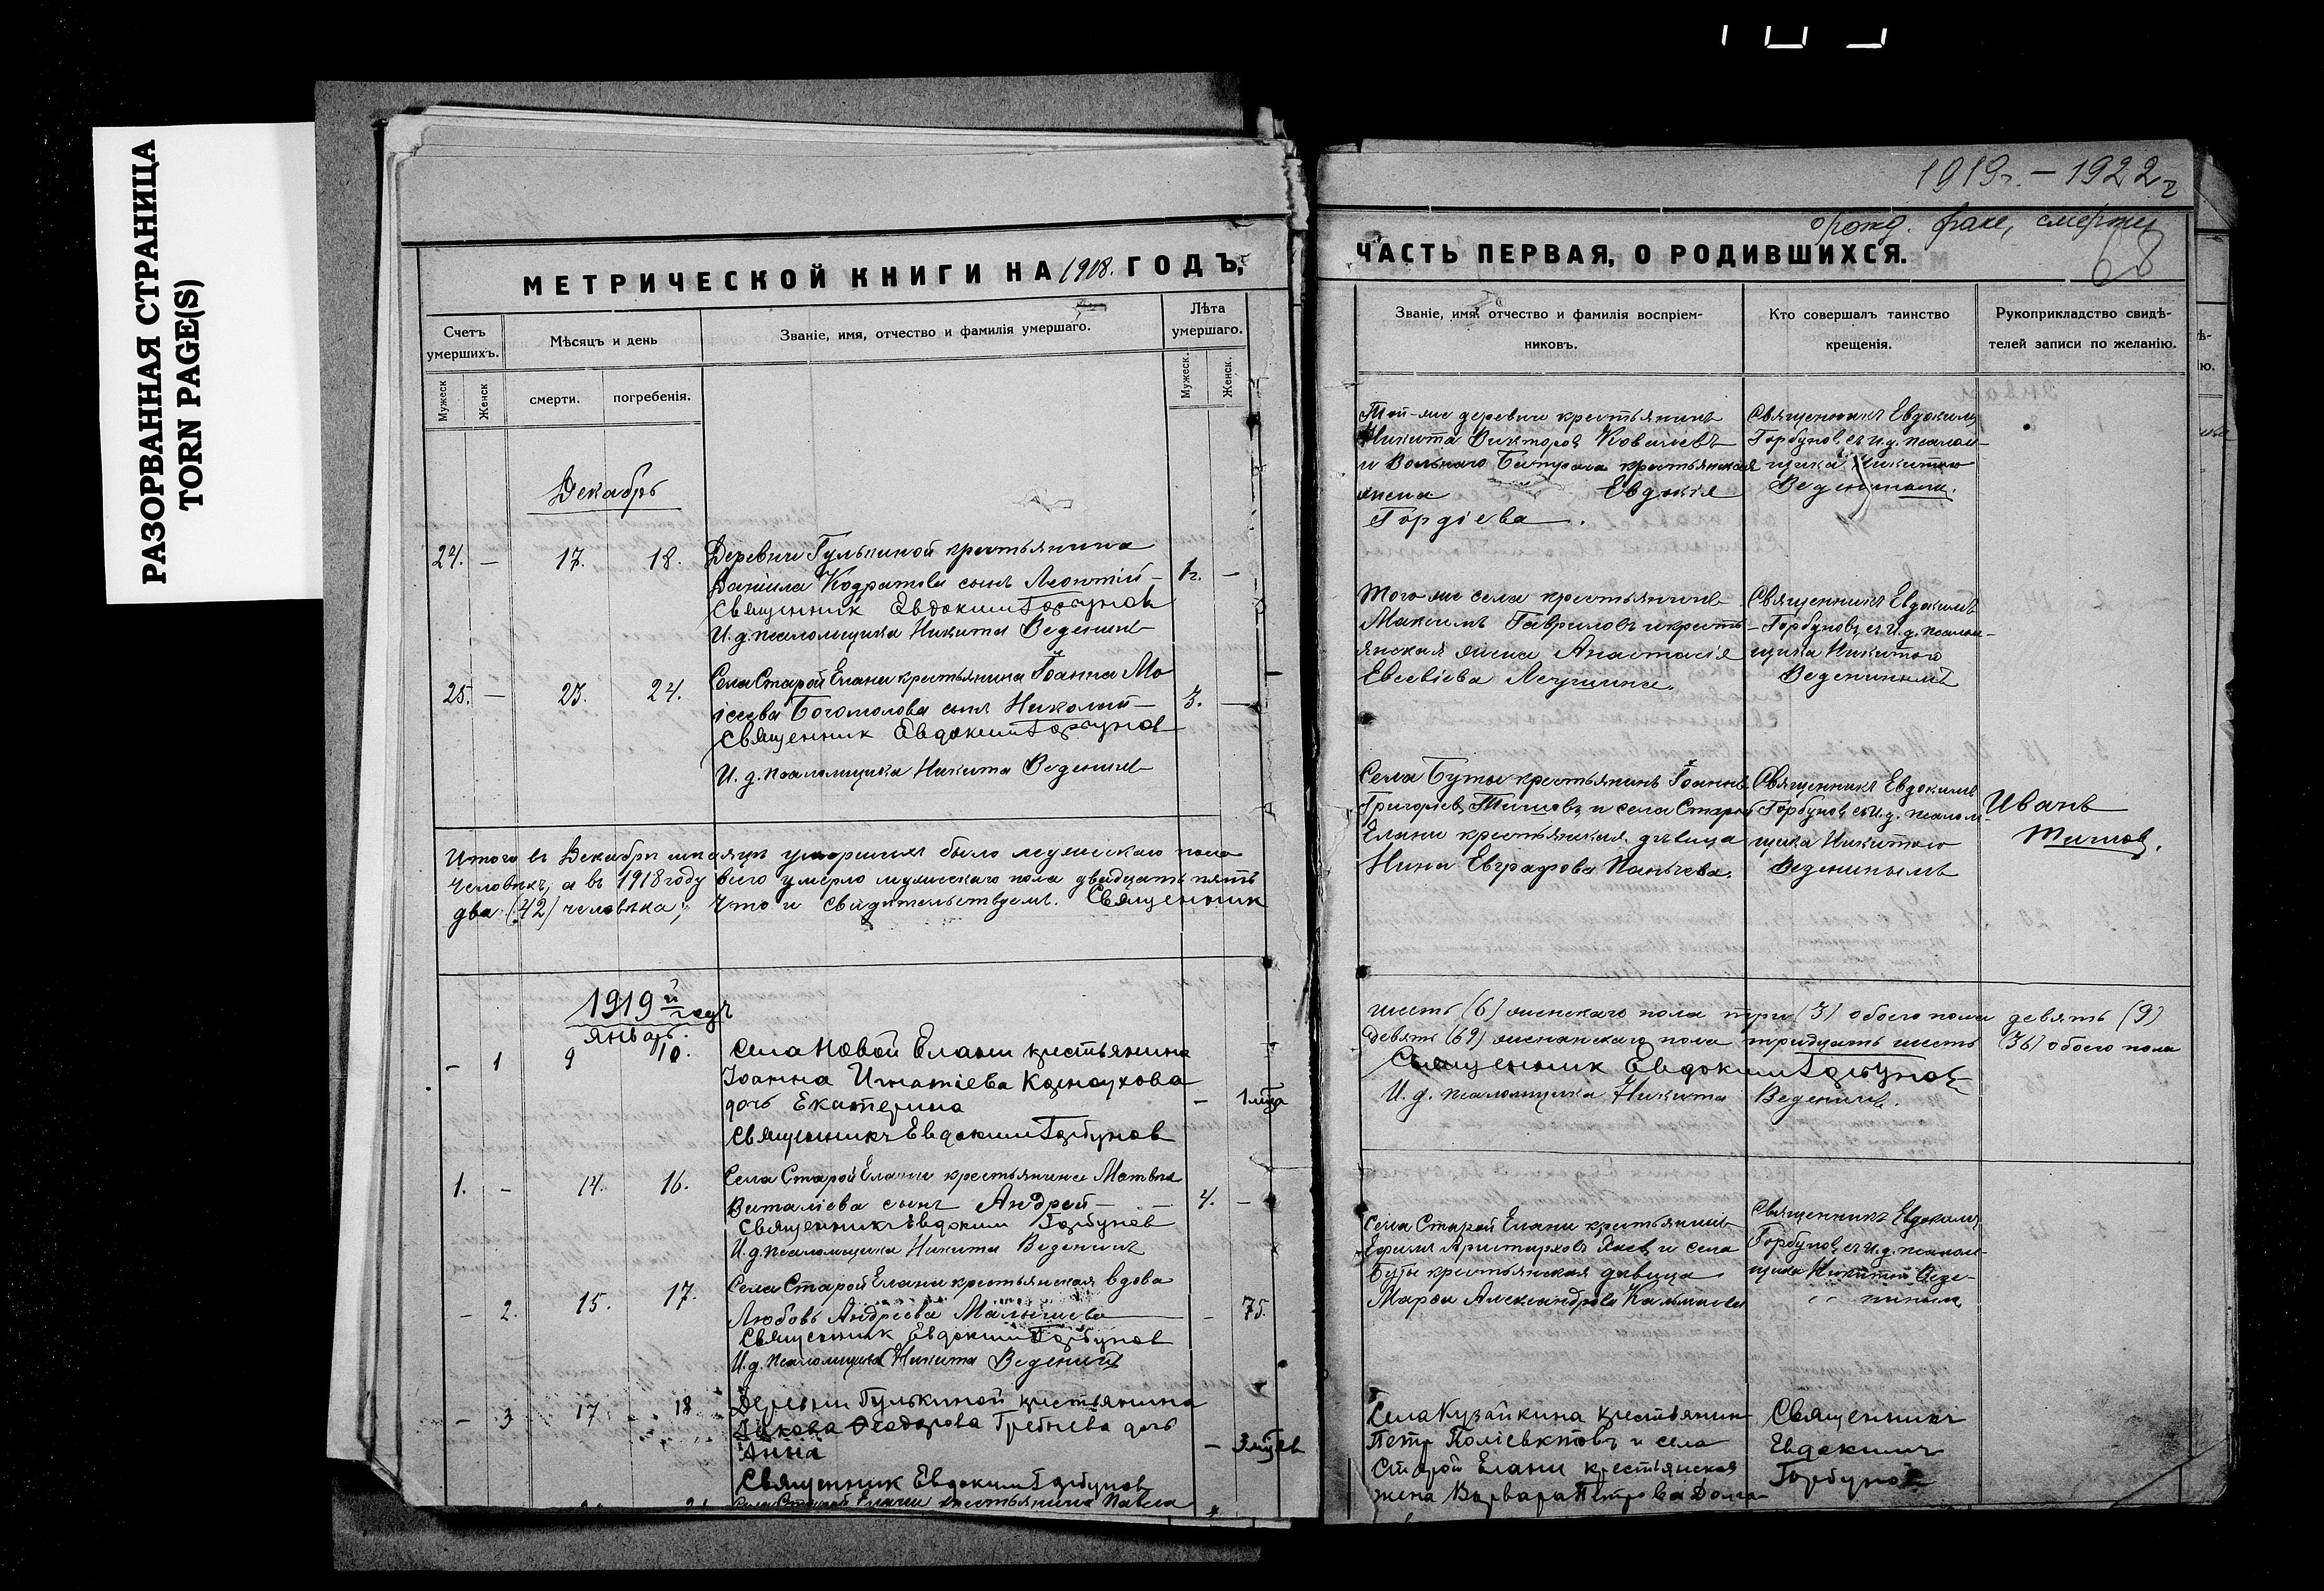 РАЗОРВАННАЯ СТРАНИЦА
TORN PAGE(S)
МЕТРИЧЕСКОЙ КНИГИ НА 1918. ГОДЪ,
Счетъ умершихъ.
Мѣсяцъ и день
Званіе, имя, отчество и фамилія умершаго.
Лѣта умершаго.
Мужеск
Женск
смерти.
погребенія.
Мужеск.
Женск.
Декабрь
24. — 17. 18. Деревни Гулькиной крестьянина
Даніила Кодратова сынъ Леонтій — 1г. —
Священник Евдоким Горбунов
И. д. псаломщика Никита Веденинъ
25. — 23. 24. Села Старой Елани крестьянина Іоанна Мо
ісеева Богомолова сынъ Николай — 3. —
Священник Евдоким Горбунов
И. д. псаломщика Никита Веденинъ
Итого въ Декабрѣ мѣсяцѣ умершихъ было мужескаго пола
человѣкъ, а въ 1918 году всего умерло мужескаго пола двадцать пять
два (42) человѣка; Что и свидѣтельствуемъ. Священник
1919й годъ
январь.
— 1 9 10. Села Новой Елани крестьянина
Іоанна Игнатіева
дочь Екатерина — 1 мца
Священникъ Евдоким Горбунов
1. — 14. 16. Села Старой Елани крестьянина Матвѣя
Виталіева сынъ Андрей — 4. —
Священникъ Евдоким Горбунов
И. д. псаломщика Никита Веденинъ
— 2. 15. 17. Села Старой Елани крестьянская вдова
Любовь Андреева Малышева — 75.
Священник Евдоким Горбунов
И. д. псаломщика Никита Веденинъ
— 3 17 18 Деревни Гулькиной крестьянина
Іакова Феодорова Гребнева дочь
Анна — 3 мцев
Священник Евдоким Горбунов
Села Старой Елани крестьянина Павела
1919г. — 1922г
о рожд. браке, смерти
68
ЧАСТЬ ПЕРВАЯ, О РОДИВШИХСЯ.
Званіе, имя, отчество и фамилія воспріем-
никовъ.
Кто совершалъ таинство
крещенія.
Рукоприкладство свидѣ-
телей записи по желанію.
Той-же деревни крестьянинъ
Никита Викторовъ Ковалевъ
и Вольнаго крестьянская
жена Евдокія
Гордіева.
Священникъ Евдокимъ
Горбунов, съ и. д. псалом-
щика Никитою
Веденинымъ.
Того же села крестьянинъ
Максимъ Гавриловъ и кресть-
янская жена Анастасія
Евсевіева
Священникъ Евдокимъ
Горбуновъ, съ и. д. псалом-
щика Никитою
Веденинымъ
Села Буты крестьянинъ Іоаннъ
Григорьев и села Старой
Елани крестьянская дѣвица
Нина Евграфова
Священникъ Евдокимъ
Горбунов, съ И. д. псалом-
щика Никитою
Веденинымъ
Иванъ
шесть (6) женскаго пола три (3) обоего пола девять (9)
девять (69) женскаго пола тридцать шесть (36) обоего пола
Священник Евдоким Горбунов
И. д. псаломщика Никита Веденинъ.
Села Старой Елани крестьянинъ
Ефимъ Аристарховъ и села
Буты крестьянская дѣвица
Марѳа Александрова
Священникъ Евдокимъ
Горбунов, съ и. д. псалом-
щика Никитою Веде-
нинымъ
Села Кузайкина крестьянин
Петр Поліевктовъ и села
Старой Елани крестьянская
жена Варвара Петрова
Священникъ
Евдокимъ
Горбунов